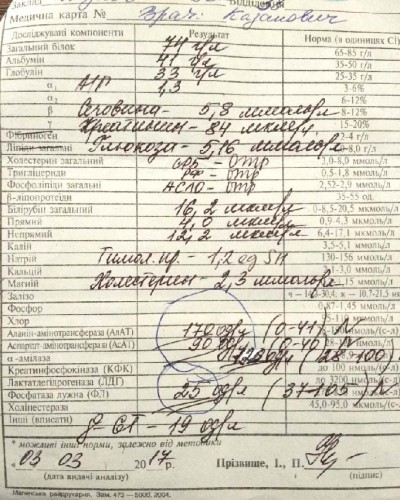 Медична карта № Врач: Казанович
Досліджувані компоненти Результат Норма (в одиницях СІ)
Загальний білок 74 г/л 65-85 г/л
Альбумін 41 г/л 35-50 г/л
Глобулін 33 г/л 25-35 г/л
α₁ А/Г 1,3 3-6%
α₂ 6-12%
β Сечовина - 5,8 ммоль/л 8-12%
γ Креатинин - 84 мкмоль/л 15-20%
Фібриноген 2-4 г/л
Ліпіди загальні Глюкоза - 5,16 ммоль/л
Холестерин загальний СРБ - отр 3,0-8,0 ммоль/л
Тригліцериди РФ - отр 0,5-1,8 ммоль/л
Фосфоліпіди загальні АСЛО - отр 2,52-2,9 ммоль/л
β-ліпопротеїди 35-55 од.
Білірубін загальний 16,2 мкмоль/л 0-8,5-20,5 мкмоль/л
Прямий 4,0 мкмоль/л 0,9-4,3 мкмоль/л
Непрямий 12,2 мкмоль/л 6,4-17,1 мкмоль/л
Калій 3,5-5,1 ммоль/л
Натрій Тимол. пр. - 1,2 ед SH 130-156 ммоль/л
Кальцій ммоль/л
Магній Холестерин - 2,3 ммоль/л ммоль/л
Залізо
Фосфор 0,87-1,45
Хлор
Аланін-амінотрансфераза (АлАТ) 170 од/л (0-41) N
Аспартат-амінотрансфераза (АсАТ) 90 од/л (0-40) N
α-амілаза 120 од/л (28-100)
Креатинфосфокіназа (КФК) до 100
Лактатдегідрогеназа (ЛДГ) до 3200
Фосфатаза лужна (ФЛ) 25 од/л (37-105) N
Холінестераза 45,0-95,0
Інші (вписати) γ-GT - 19 од/л
* можливі інші норми, залежно від методики
« 03 03 20 17 р. Прізвище, І., П.
(дата видачі аналізу) (підпис)
Зам. 473 — 5000. 2004.